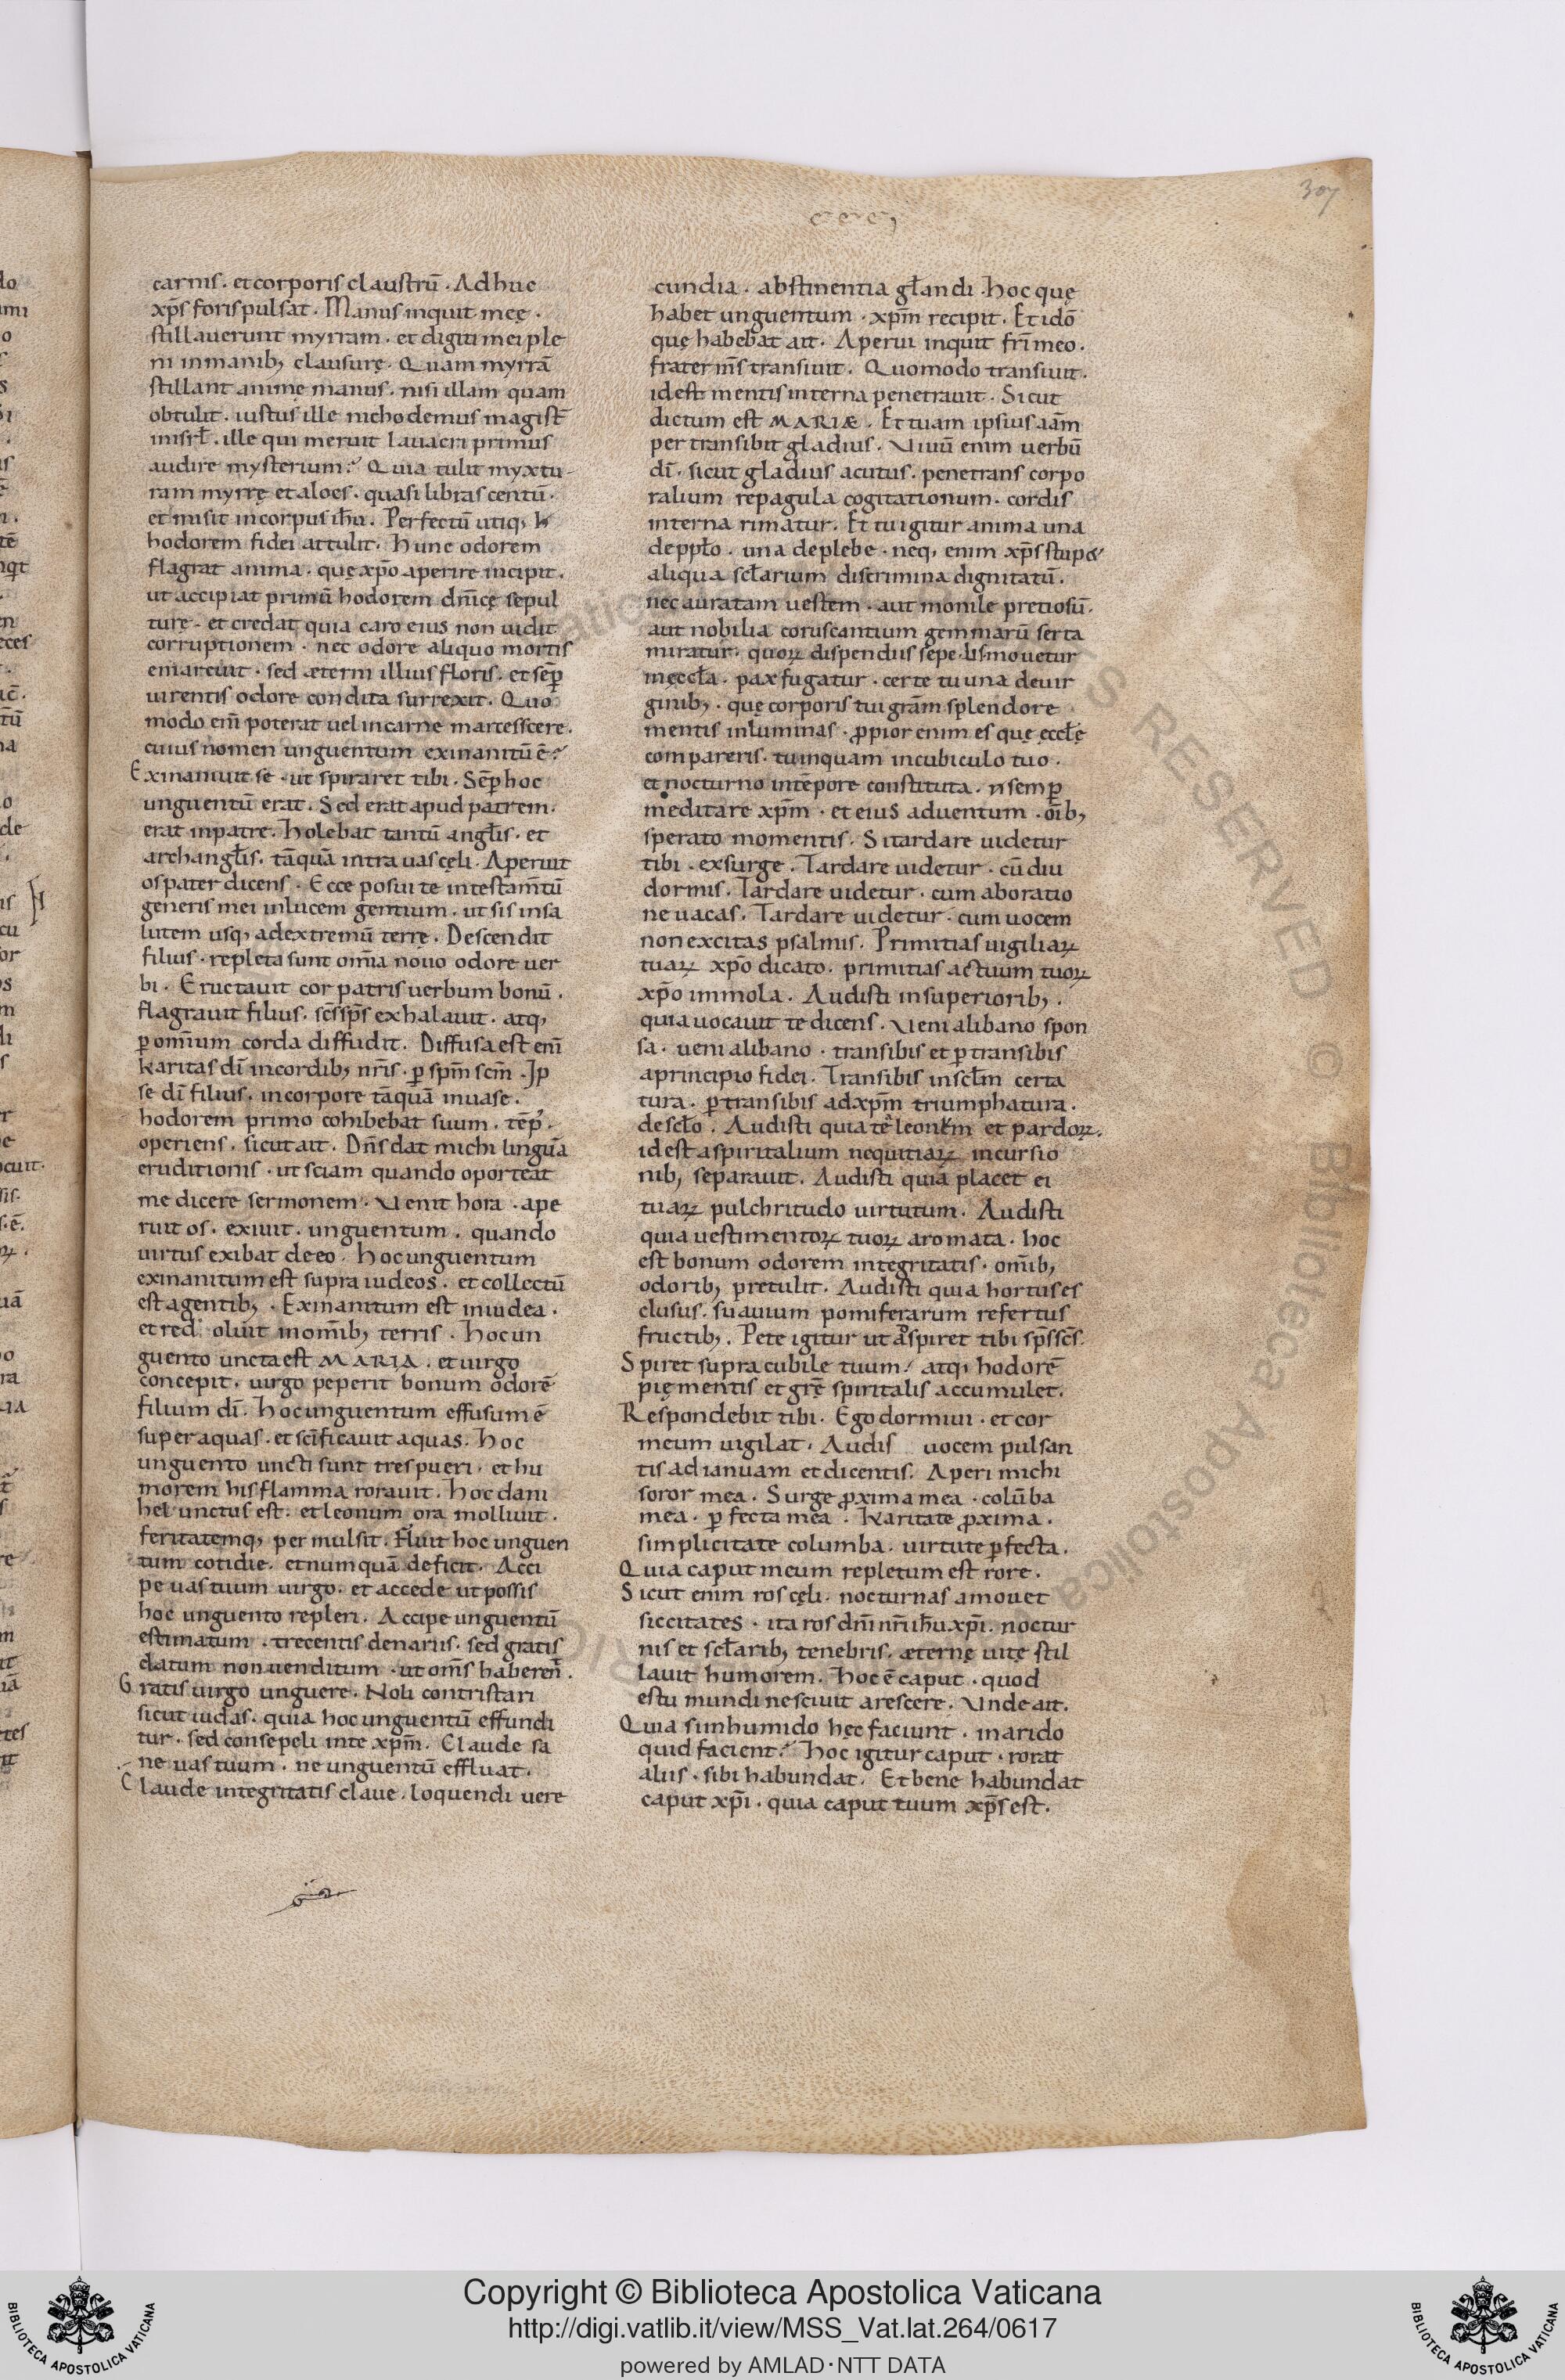 307
carnis. et corporis claustrū. Adhuc
xp̄s foris pulsat. Manus inquit meę.
stillaverunt myrram. et digiti mei ple
ni in manib; clausurę. Quam myrrā
stillant animę manus. nisi illam quam
obtulit. iustus ille nichodemus magist̄
in isrl̄. ille qui meruit lavacri primus
audire mysterium? Quia tulit myxtu-
ram myrrę et aloes. quasi libras centū.
et misit in corpus ih̄u. Perfectū utiq; h
hodorem fidei attulit. Hunc odorem
flagrat anima. quę xp̄o aperire incipit.
ut accipiat primū hodorem dn̄icę sepul
turę. et credat quia caro eius non uidit
corruptionem. nec odore aliquo mortis
emarcuit. sed æterni illius floris. et sēp
uirentis odore condita surrexit. Quo
modo enī poterat uel in carne marcesscere.
cuius nomen unguentum exinanitū ē?
Exinaniuit se. ut spiraret tibi. Sēp hoc
unguentū erat. Sed erat apud patrem.
erat in patre. Holebat tantū anglis. et
archanglis. tāquā intra uas cęli. Aperuit
os pater dicens. Ecce posui te in testam̄tū
generis mei in lucem gentium. ut sis in sa
lutem usq; ad extremū terrę. Descendit
filius. repleta sunt om̄ia nouo odore uer
bi. Eructauit cor patris uerbum bonū.
flagrauit filius. sc̄s sp̄s exhalauit. atq;
p omnium corda diffudit. Diffusa est enī
karitas dī in cordib; nr̄is. p sp̄m sc̄m. Ip
se dī filius. in corpore tāquā in uase.
hodorem primo cohibebat suum. tēp'.
operiens. sicut ait. Dn̄s dat michi linguā
eruditionis. ut sciam quando oporteat
me dicere sermonem. Uenit hora. ape
ruit os. exiuit. unguentum. quando
uirtus exibat de eo. Hoc unguentum
exinanitum est supra iudeos. et collectū
est a gentib;. Exinanitum est in iudea.
et red oluit in om̄ib; terris. Hoc un
guento uncta est MARIA. et uirgo
concepit. uirgo peperit bonum odorē
filium dī. Hoc unguentum effusum ē
super aquas. et sc̄ificauit aquas. Hoc
unguento uncti sunt tres pueri. et hu
morem his flamma rorauit. Hoc dani
hel unctus est. et leonum ora molliuit.
feritatemq; per mulsit. Fluit hoc unguen
tum cotidie. et numquā deficit. Acci
pe uas tuum uirgo. et accede ut possis
hoc unguento repleri. Accipe unguentū
estimatum. trecentis denariis. sed gratis
datum non uenditum. ut om̄s haberen̄.
Gratis uirgo unguere. Noli contristari
sicut iudas. quia hoc unguentū effundi
tur. sed consepeli in te xp̄m. Claude sa
ne uas tuum. ne unguentū effluat.
Claude integritatis claue. loquendi uere
cundia. abstinentia gl̄andi. Hoc quę
habet unguentum. xp̄m recipit. Et idō
quę habebat ait. Aperui inquit fr̄i meo.
frater m̄s transiuit. Quomodo transiuit.
id est mentis interna penetrauit. Sicut
dictum est MARIÆ. Et tuam ipsius aām
per transibit gladius. Uiuū enim uerbū
dī. sicut gladius acutus. penetrans corpo
ralium repagula cogitationum. cordis
interna rimatur. Et tu igitur anima una
de ppl̄o. una de plebe. neq; enim xp̄s stupet
aliqua scl̄arium discrimina dignitatū.
nec auratam uestem. aut monile pretiosū.
aut nobilia coruscantium gemmarū serta
miratur. quoꝝ dispendiis sepe lis mouetur
in ęccl̄a. pax fugatur. certe tu una de uir
ginib;. quę corporis tui grām splendore
mentis inluminas. ꝓpior enim es quę ęccl̄ę
compareris. tu inquam in cubiculo tuo.
et nocturno in tēpore constituta. n semp
meditare xp̄m. et eius aduentum. oīb;
sperato momentis. Si tardare uidetur
tibi. exsurge. Tardare uidetur. cū diu
dormis. Tardare uidetur. cum ab oratio
ne uacas. Tardare uidetur. cum uocem
non excitas psalmis. Primitias uigiliaꝝ
tuaꝝ xp̄o dicato. primitias actuum tuoꝝ
xp̄o immola. Audisti in superiorib;.
quia uocauit te dicens. Ueni a libano spon
sa. ueni a libano. transibis et p transibis
a principio fidei. Transibis in scl̄m certa
tura. p transibis ad xp̄m triumphatura.
de scl̄o. Audisti quia te leonum et pardoꝝ.
id est a spiritalium nequitiaꝝ incursio
nib; separauit. Audisti quia placet ei
tuaꝝ pulchritudo uirtutum. Audisti
quia uestimentoꝝ tuoꝝ aromata. hoc
est bonum odorem integritatis. om̄ib;
odorib; pretulit. Audisti quia hortus es
clusus. suauium pomiferarum refertus
fructib;. Pete igitur ut aspiret tibi sp̄s sc̄s.
Spiret supra cubile tuum. atq; hodorē
pię mentis et grę̄ spiritalis accumulet.
Respondebit tibi. Ego dormiui. et cor
meum uigilat. Audis uocem pulsan
tis ad ianuam et dicentis. Aperi michi
soror mea. Surge ꝓxima mea. colūba
mea. pfecta mea. Karitate ꝓxima.
simplicitate columba. uirtute pfecta.
Quia caput meum repletum est rore.
Sicut enim ros cęli. nocturnas amouet
siccitates. ita ros dn̄i nr̄i ih̄u xp̄i. noctur
nis et scl̄arib; tenebris. æternę uitę stil
lauit humorem. Hoc ē caput. quod
estu mundi nesciuit arescere. Unde ait.
Quia si in humido hęc faciunt. in arido
quid facient? Hoc igitur caput. rorat
aliis. sibi habundat. Et bene habundat
caput xp̄i. quia caput tuum xp̄s est.
Copyright © Biblioteca Apostolica Vaticana
http://digi.vatlib.it/view/MSS_Vat.lat.264/0617
powered by AMLAD·NTT DATA
BIBLIOTECA APOSTOLICA VATICANA
BIBLIOTECA APOSTOLICA VATICANA